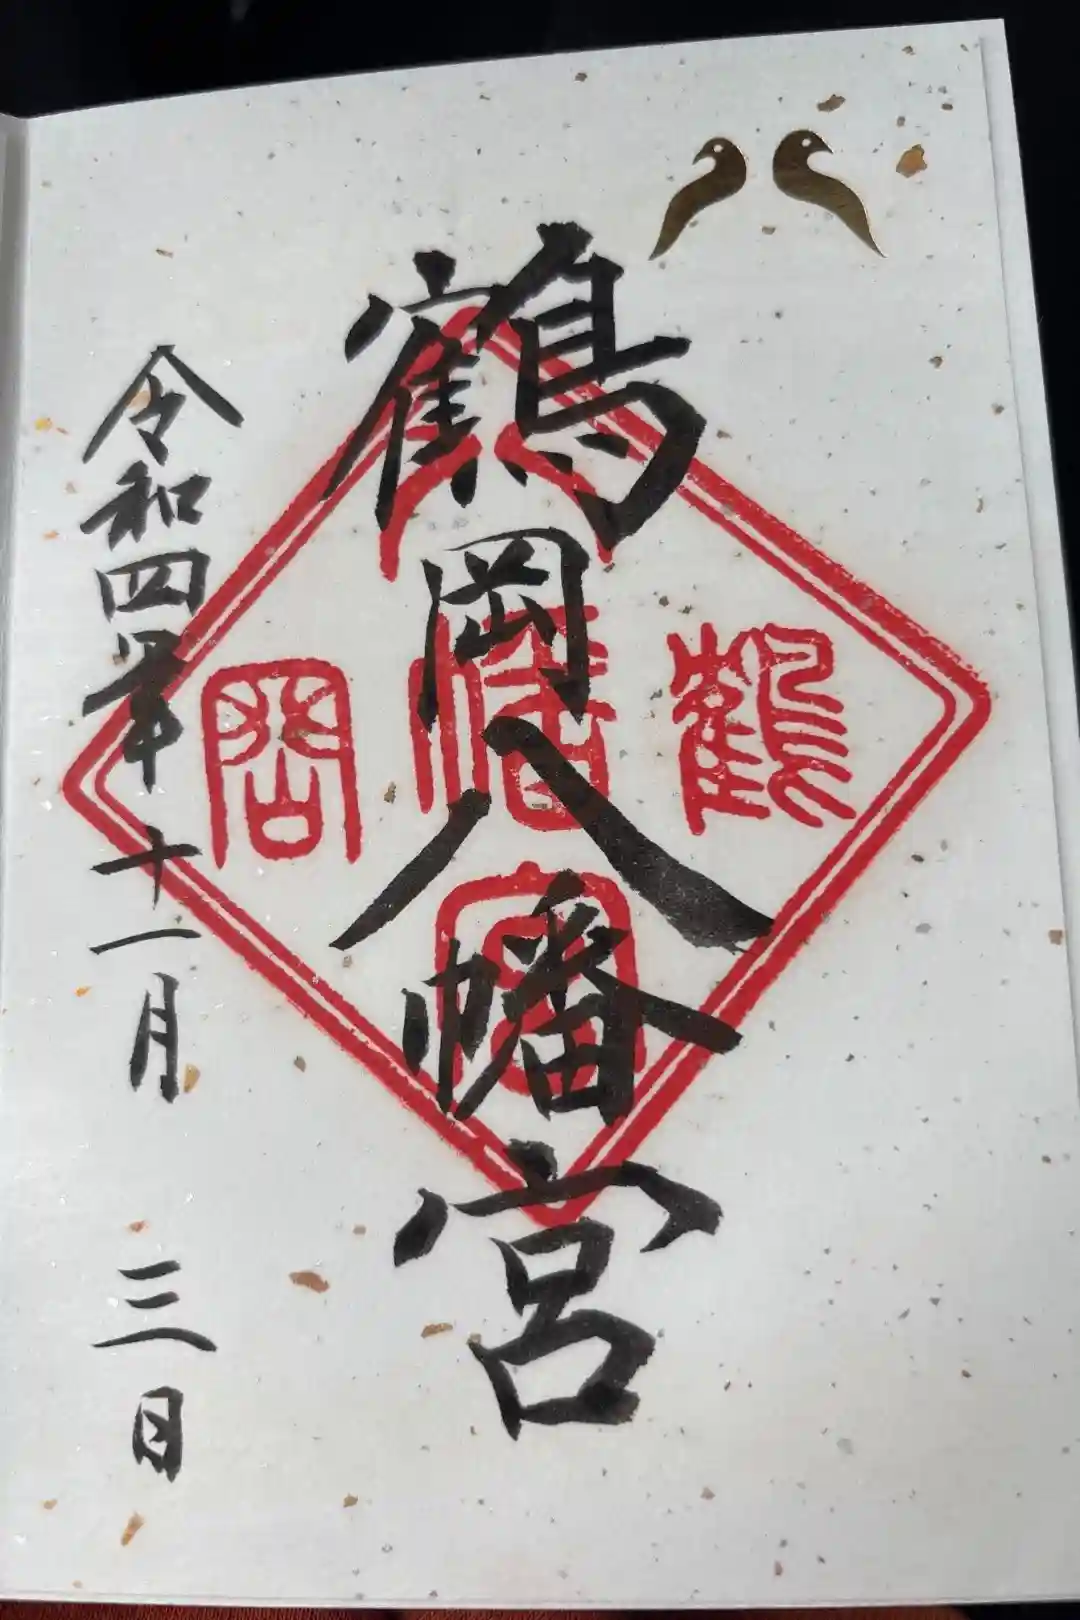 鶴岡八幡宮
令和四年十一月三日
鶴
八幡宮
岡